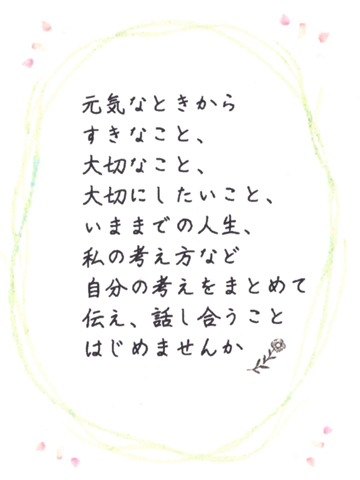 元気なときから
すきなこと、
大切なこと、
大切にしたいこと、
いままでの人生、
私の考え方など
自分の考えをまとめて
伝え、話し合うこと
はじめませんか